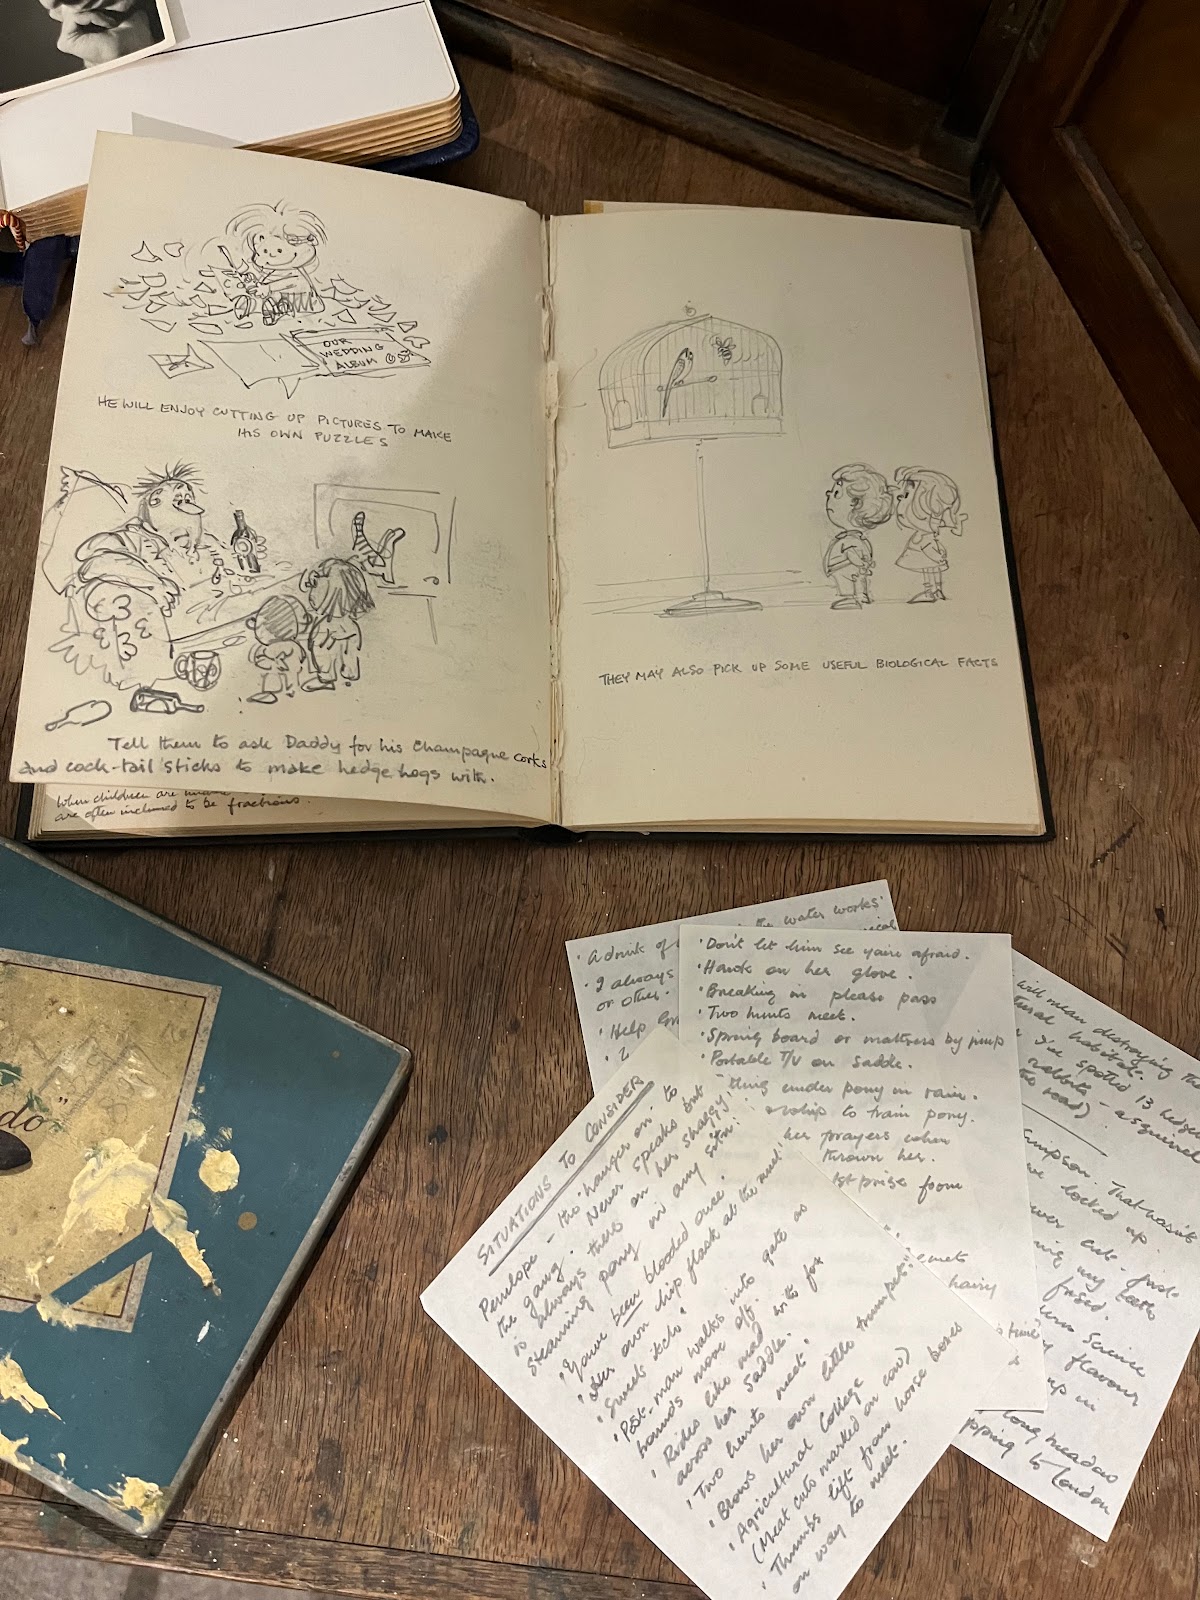 OUR
WEDDING
ALBUM
HE WILL ENJOY CUTTING UP PICTURES TO MAKE
HIS OWN PUZZLES
Tell them to ask Daddy for his Champagne corks
and cock-tail sticks to make hedge hogs with.
When children are
are often inclined to be fractions.
THEY MAY ALSO PICK UP SOME USEFUL BIOLOGICAL FACTS
do"
the water works.
A drink of
I always
or other.
Help
Don't let him see you're afraid.
Hawk on her glove.
Breaking in please pass
Two hunts meet.
Spring board or mattress by jump
Portable T/V on saddle.
thing under pony in rain.
whip to train pony.
her prayers when
thrown her.
1st prize from
hairy
SITUATIONS TO CONSIDER
Penelope - the hanger on to
the gang. Never speaks but
is always there on her shaggy,
steaming pony in any sitn.
"You've been blooded once.
Her own hip flask at the meet.
Sweets itch
Post-man walks into gate as
hounds move off.
Rides like mad with fox
across her saddle.
Two hunts meet.
Blows her own little trumpet.
Agricultural College
(Meat cuts marked on cow)
Thumbs lift from horse boxes
on way to meet.
will mean destroying the
habitat.
I've spotted 13 hedge
rabbits - a squirrel
the road)
Simpson. That hasn't
locked up.
my teeth
fused.
Science
flavour
up in
long meadow
to London